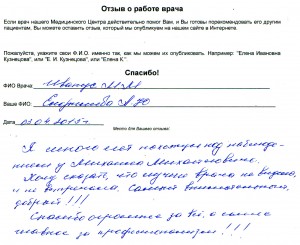 Отзыв о работе врача
Если врач нашего Медицинского Центра действительно помог Вам, и Вы готовы порекомендовать его другим
пациентам, Вы можете оставить отзыв, который мы опубликуем на нашем сайте в Интернете.
Пожалуйста, укажите свои Ф.И.О. именно так, как мы можем их опубликовать. Например: "Елена Ивановна
Кузнецова", или "Е. И. Кузнецова", или "Елена К."
Спасибо!
ФИО Врача: М.М
Ваше ФИО:
Дата
Место для Вашего отзыва:
Я много лет наблюдаюсь
у Михаила Михайловича.
Хочу сказать, что лучшего врача не видела,
и не встречала. Самый внимательный,
добрый!!!
Спасибо огромное за всё, а самое
главное за профессионализм!!!